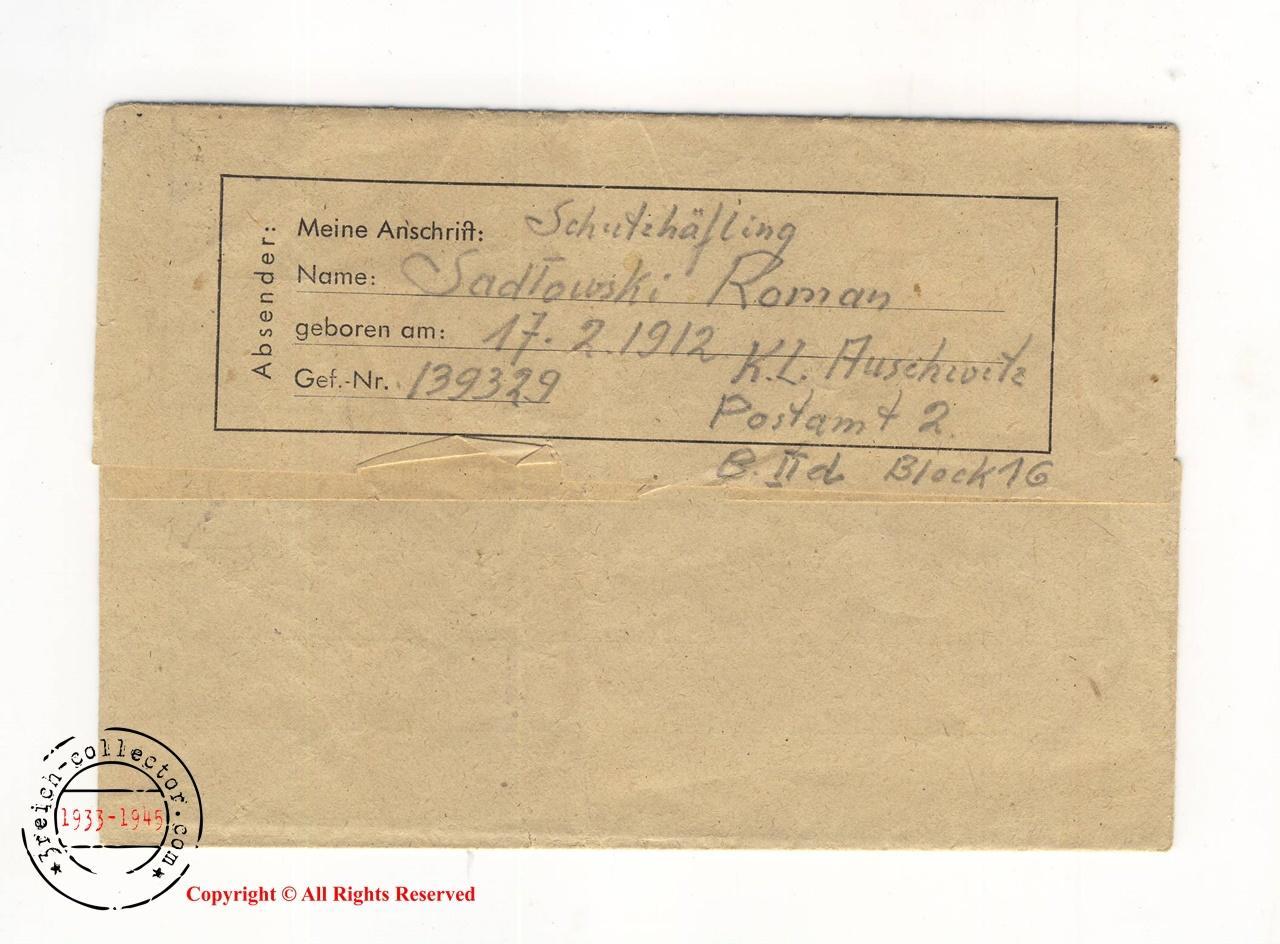 Absender:
Meine Anschrift: Schutzhäfling
Name: Sadłowski Roman
geboren am: 17. 2. 1912
K.L. Auschwitz
Gef.-Nr. 139329
Postamt 2.
B.IId Block 16
3reich-collector.com
1933-1945
Copyright © All Rights Reserved